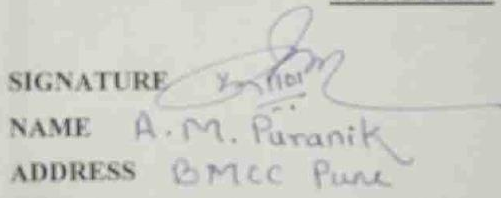 SIGNATURE
NAME A. M. Puranik
ADDRESS BMCC Pune